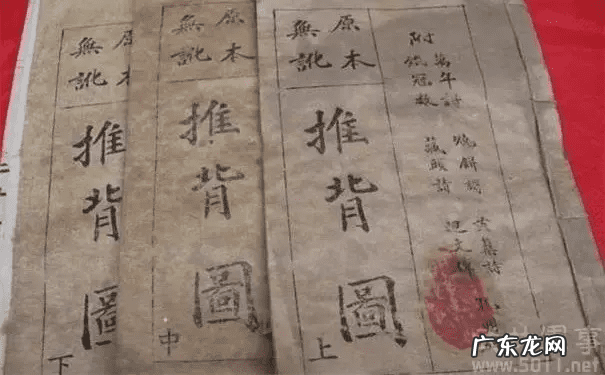 附
萬年詩
鉄冠數
燒餅謌
藏頭詩
黃蘗詩
原本
無訛
推背圖
上
原本
無訛
推背圖
中
原本
無訛
推背圖
下
广东龙网
www.5011.net